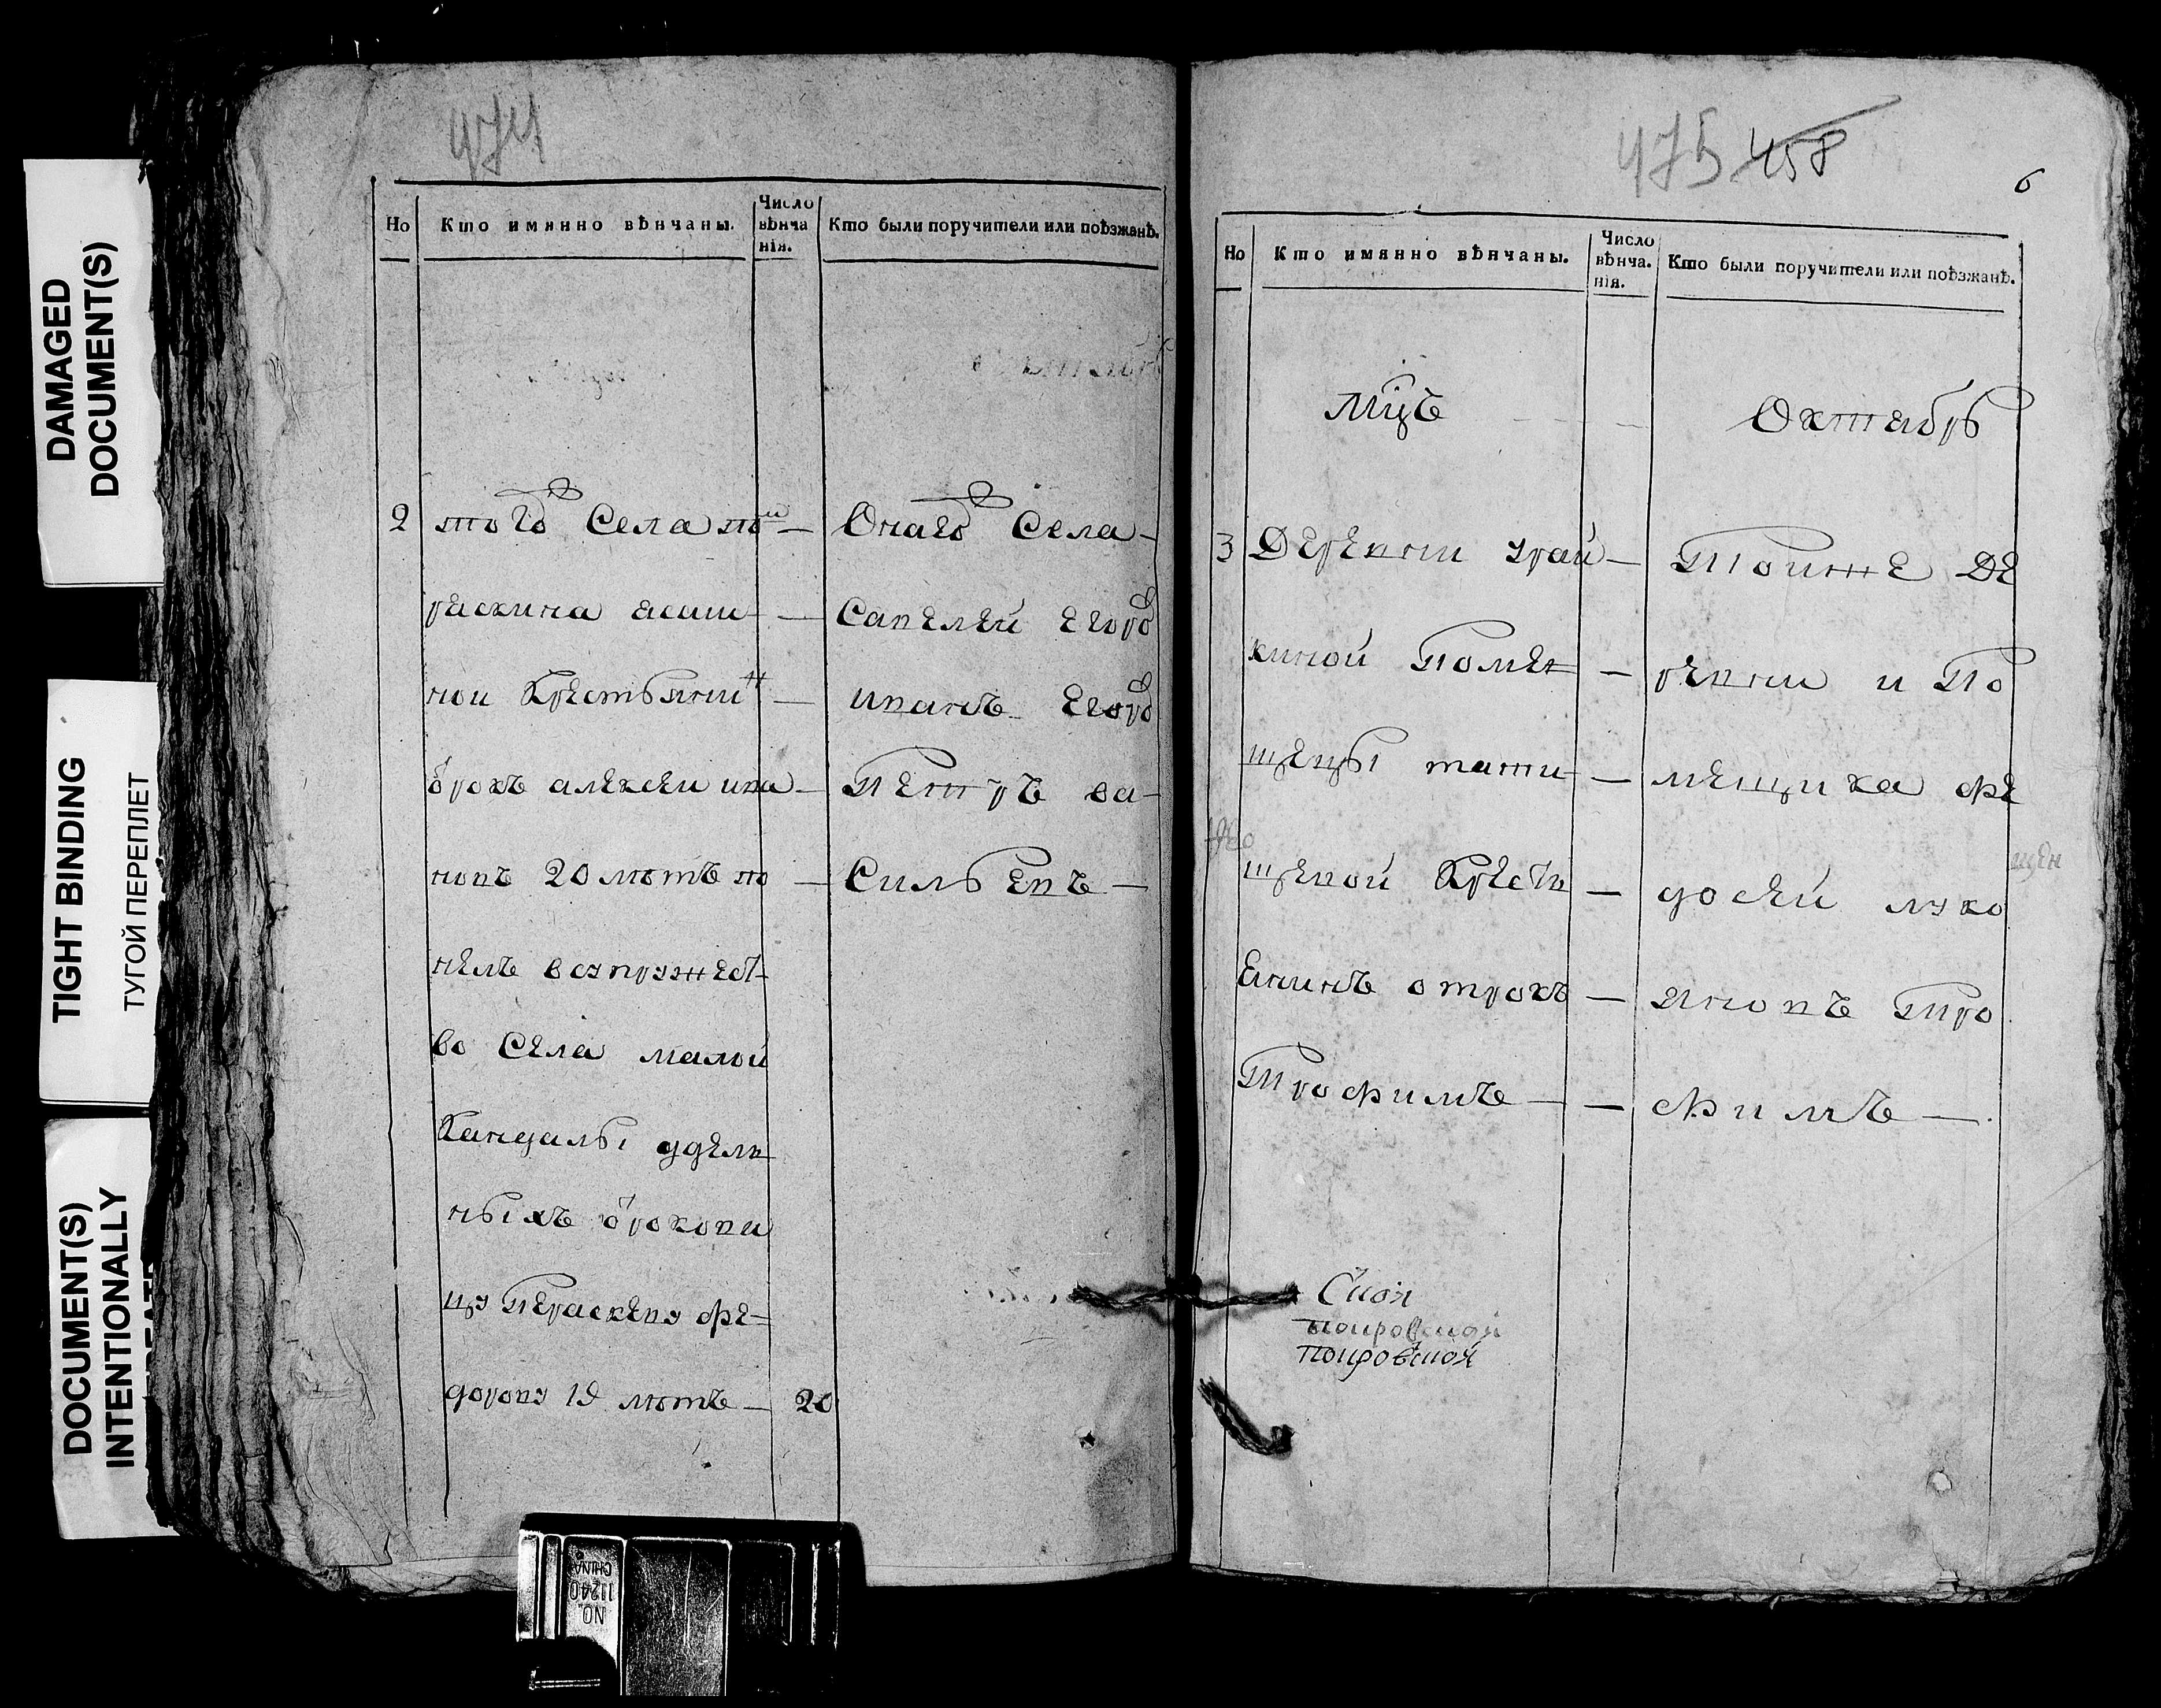 DAMAGED
DOCUMENT(S)
TIGHT BINDING
ТУГОЙ ПЕРЕПЛЕТ
DOCUMENT(S)
INTENTIONALLY
474
Но
Кто имянно вѣнчаны.
Число
вѣнча
нія.
Кто были поручители или поѣзжанѣ.
2 того Села по
раскина ясаш
нои Крестьянин
отрокъ алексеи ива
новъ 20 лѣтъ по
нелъ всупружест
во Села малой
Кандалы удель
ныхъ отрокови
цу Пераскеву фе-
дорову 19 лѣтъ — 20
Онаго Села
Савелей Егоро
иванъ Егоро
Петръ ва-
Сильевъ
475 458
6
Но
Кто имянно вѣнчаны.
Число
вѣнча.
нія.
Кто были поручители или поѣзжанѣ.
Мцъ Октябрь
3 Деревни урай
киной Поме
щецы тати
щевой Крестья
енинъ отрокъ
Трофимъ
Тоиже Де
ревни и По
мещика фе
досей луко
яновъ Тро
фимъ
щен
Сиоя
NO.
11240
CHINA